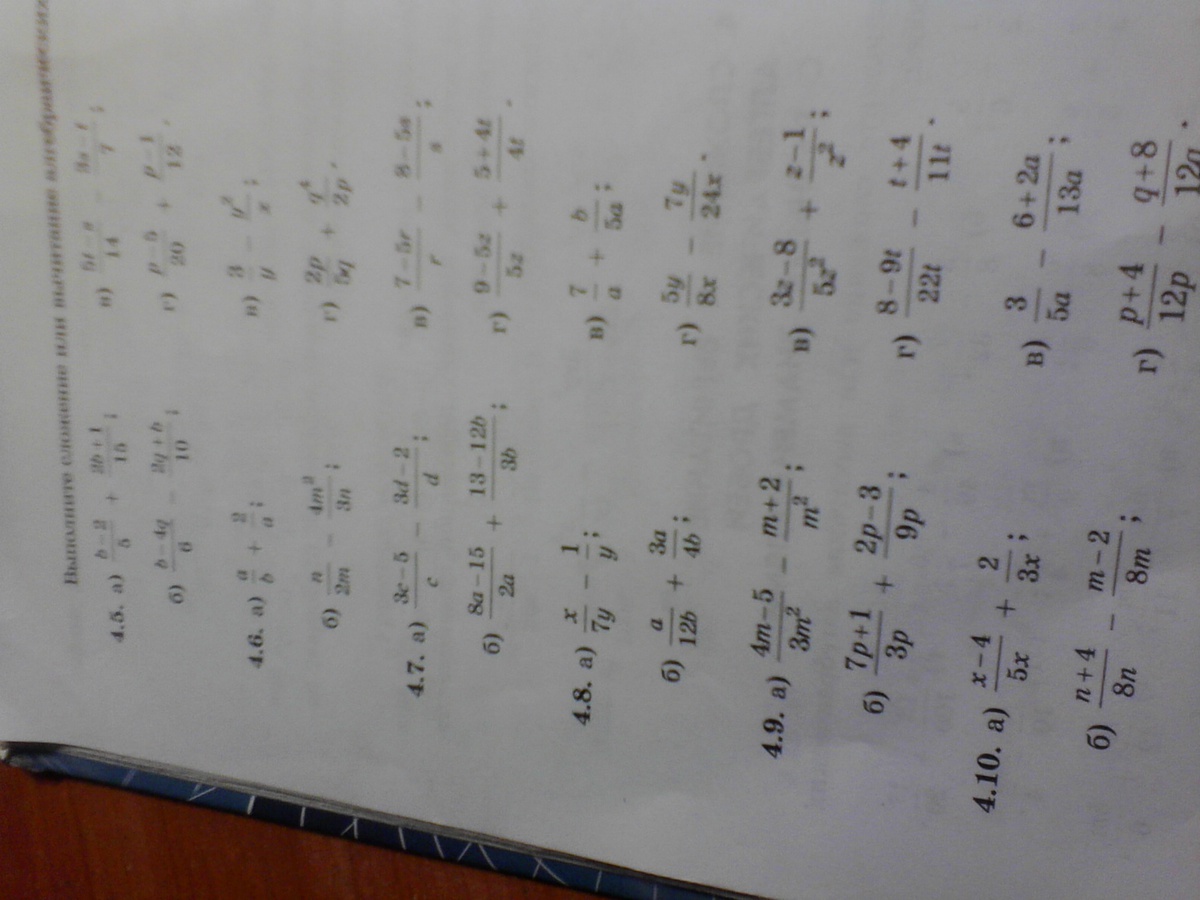 Выполните сложение или вычитание алгебраических
4.5. а) \frac{b-2}{5} + \frac{2b+1}{15}; в) \frac{5t-s}{14} - \frac{3s-t}{7};
б) \frac{b-4q}{6} - \frac{2q+b}{10}; г) \frac{p-5}{20} + \frac{p-1}{12}.
4.6. а) \frac{a}{b} + \frac{2}{a}; в) \frac{3}{y} - \frac{y^2}{x};
б) \frac{n}{2m} - \frac{4m^2}{3n}; г) \frac{2p}{5q} + \frac{q^4}{2p}.
4.7. а) \frac{3c-5}{c} - \frac{3d-2}{d}; в) \frac{7-5r}{r} - \frac{8-5s}{s};
б) \frac{8a-15}{2a} + \frac{13-12b}{3b}; г) \frac{9-5z}{5z} + \frac{5+4t}{4t}.
4.8. а) \frac{x}{7y} - \frac{1}{y}; в) \frac{7}{a} + \frac{b}{5a};
б) \frac{a}{12b} + \frac{3a}{4b}; г) \frac{5y}{8x} - \frac{7y}{24x}.
4.9. а) \frac{4m-5}{3m^2} - \frac{m+2}{m^2}; в) \frac{3z-8}{5z^2} + \frac{z-1}{z^2};
б) \frac{7p+1}{3p} + \frac{2p-3}{9p}; г) \frac{8-9t}{22t} - \frac{t+4}{11t}.
4.10. а) \frac{x-4}{5x} + \frac{2}{3x}; в) \frac{3}{5a} - \frac{6+2a}{13a};
б) \frac{n+4}{8n} - \frac{m-2}{8m}; г) \frac{p+4}{12p} - \frac{q+8}{12q}.